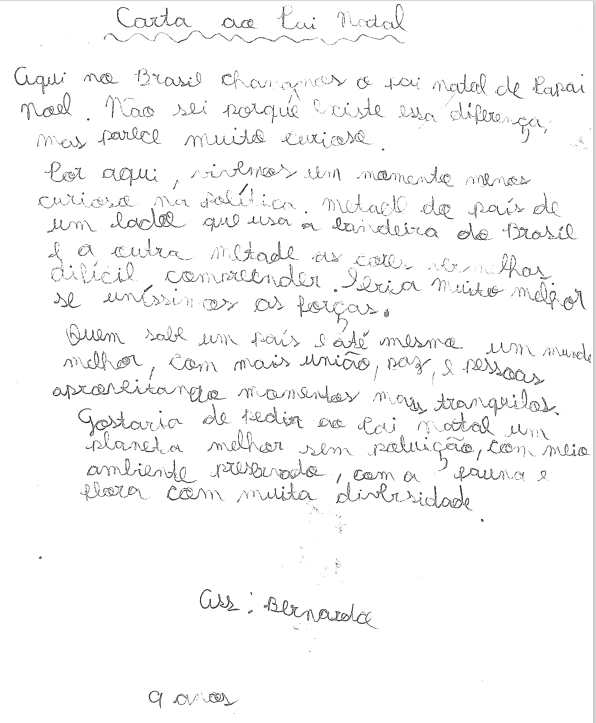 Carta ao Pai Natal
Aqui no Brasil chamamos o pai natal de Papai
Noel. Não sei porquê existe essa diferença,
mas parece muito curioso.
Por aqui, vivemos um momento menos
curioso na política. Metade do país de
um lado que usa a bandeira do Brasil
e a outra metade as cores vermelhas
difícil compreender. Seria muito melhor
se uníssimos as forças.
Quem sabe um país e até mesmo um mundo
melhor, com mais união, paz, e pessoas
aproveitando momentos mais tranquilos.
Gostaria de pedir ao Pai natal um
planeta melhor sem poluição, com meio
ambiente preservado, com a fauna e
flora com muita diversidade.
Ass: Bernardo
9 anos